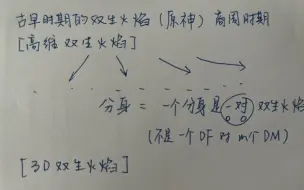 古早时期的双生火焰 (原神) 商周时期
[高维 双生火焰]
分身 = 一个分身是一对双生火焰
(不是一个DF对m个DM)
[3D 双生火焰]